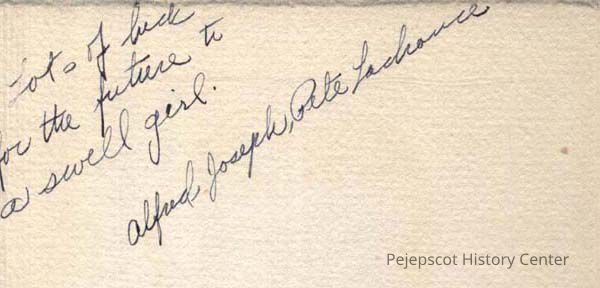 Lots of luck
for the future to
a swell girl.
Alfred Joseph, Pete Lachance
Pejepscot History Center